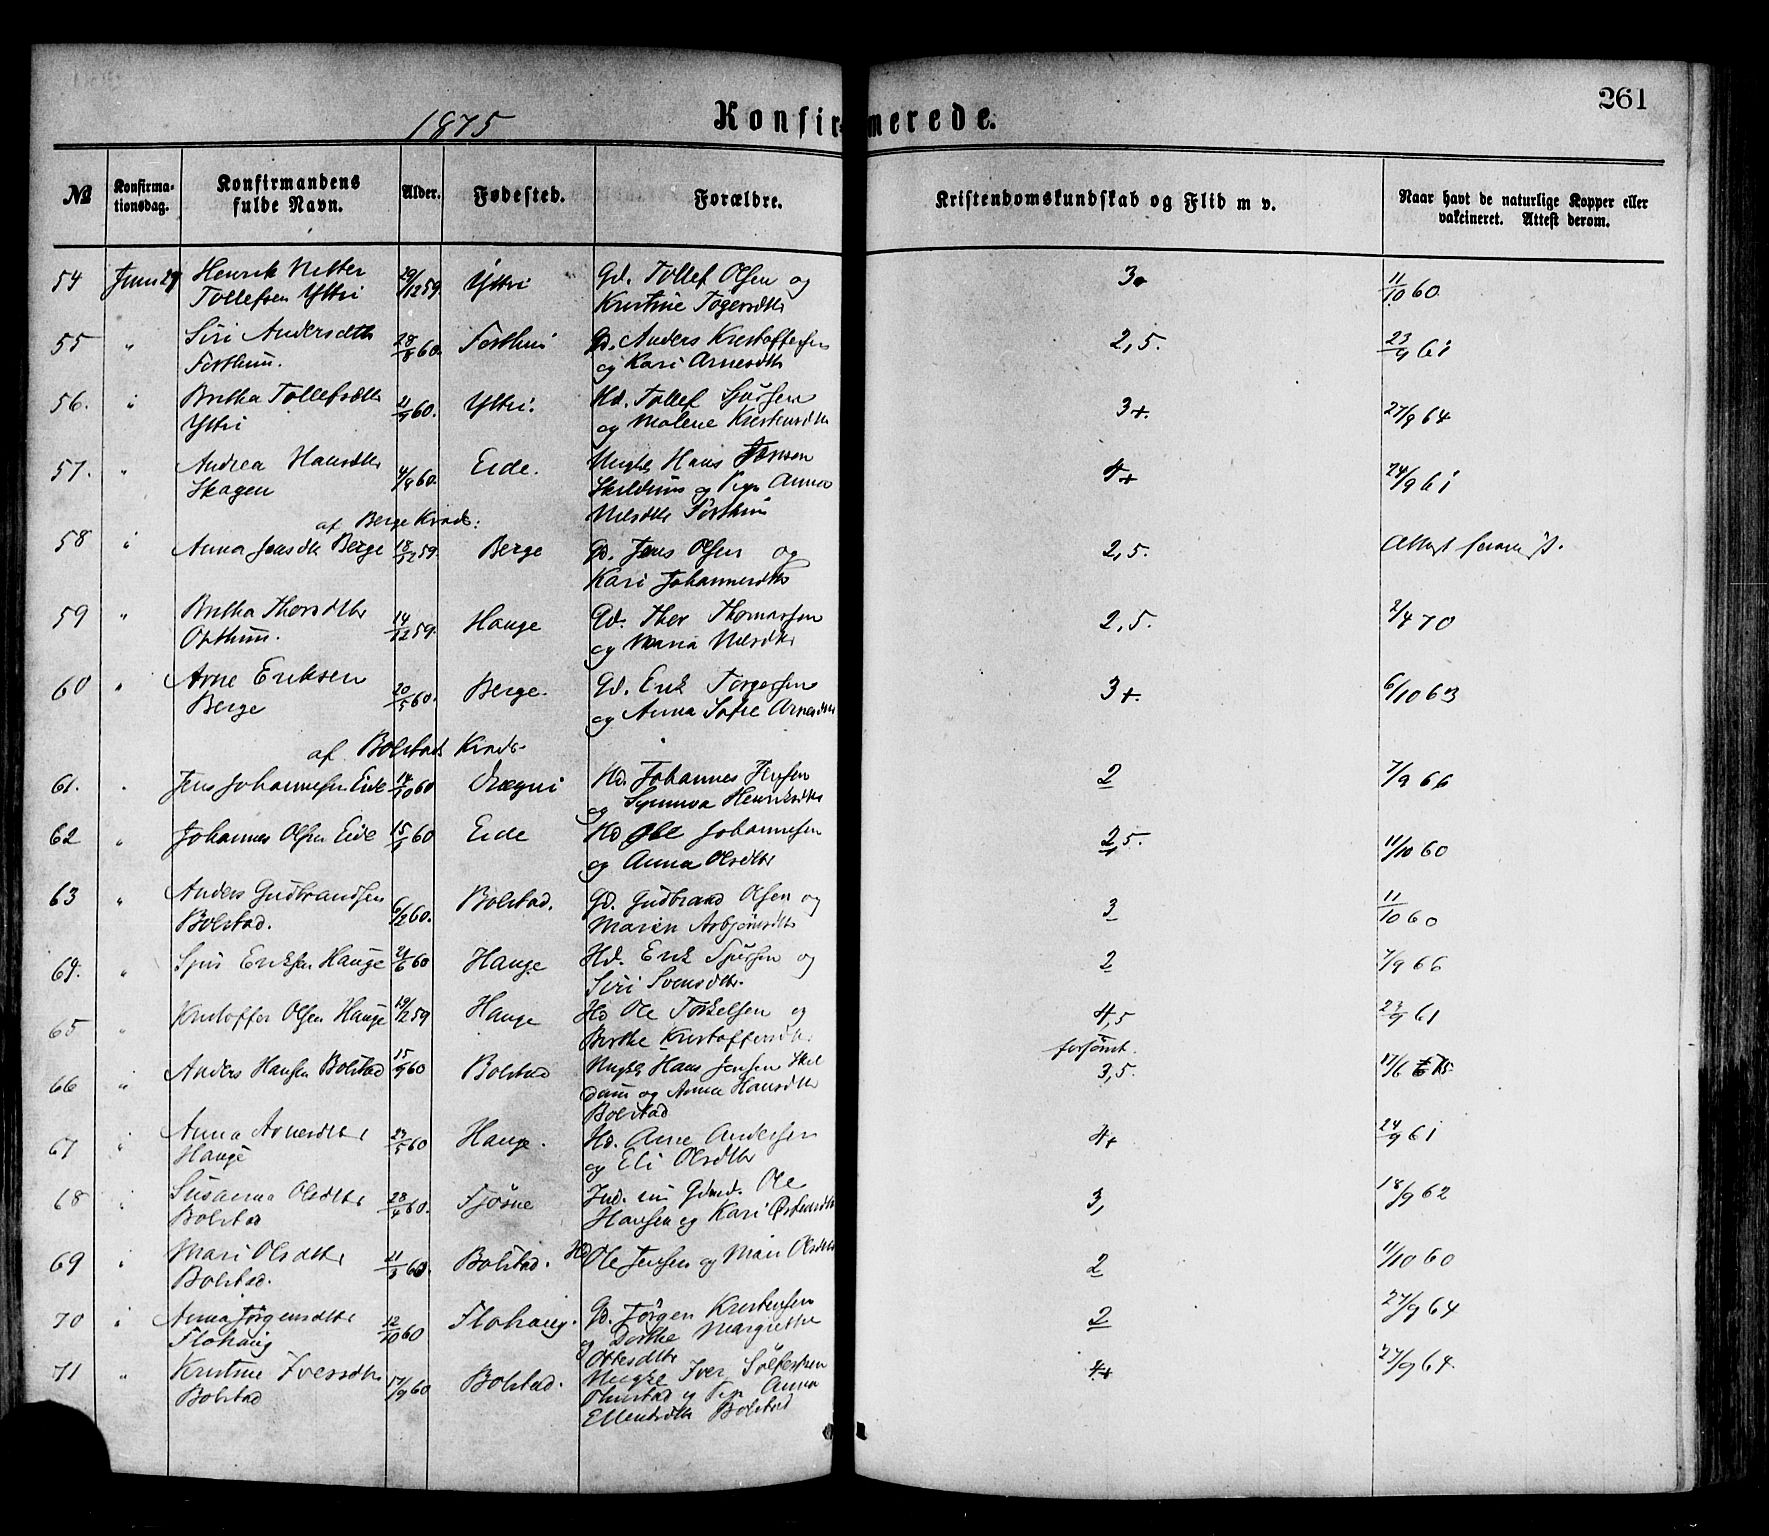 261
1875 Konfirmerede.
№ Konfirma-tionsdag. Konfirmandens fulde Navn. Alder. Fødested. Forældre. Kristendomskundskab og Flid m v. Naar havt de naturlige Kopper eller vakcineret. Attest derom.
54 Juni 27 Henrik Nitter 29/12 59 Yttri Gd. Tollef Olsen og 3. 11/10 60
Tollefsen Yttri Kristine
55 " Siri Andersdtr 28/8 60. Forthun Gd. Anders Kristoffersen 2,5. 23/9 61
Forthun. og Kari Arnesdtr
56. " Britha Tollefsdtr 60. Yttri. Hd. Tollef Sjursen 3+. 27/9 64
Yttri og Malene Kristensdtr
57. " Andrea Hansdtr 4/9 60. Eide. Ungk. Hans Jensen 4+ 24/9 61
Skagen Skildum og Pige Anna
Nilsdtr Forthun
af Berge Krads:
58 " Anna Jensdtr Berge 18/12 59. Berge Gd. Jens Olsen og 2,5. Attest
Kari Johannesdtr
59 " Britha Thorsdtr 14/12 59. Hauge Gd. Thor Thomassen 2,5. 2/4 70
Opthun. og Maria Nilsdtr
60 " Arne Eriksen 20/5 60. Berge. Gd. Erik Torgersen 3+. 6/10 63
Berge og Anna Sofie Arnesdtr
af Bolstad Krads.
61. " Jens Johannesen Eide 14/10 60 Hd. Johannes Jensen 2 7/9 66
og Synneva Henriksdtr
62 " Johannes Olsen Eide 60 Eide Hd Ole Johannesen 2,5. 11/10 60
og Anna Olsdtr
63 " Anders Gudbrandsen 6/12 60. Bolstad. Gd. Gudbrand Olsen og 3 11/10 60
Bolstad. Maren Asbjønsdtr
64. " Sjur Eriksen Hauge 60 Hauge Hd. Erik Sjursen og 2 7/9 66
Siri Svensdtr.
65 " Kristoffer Olsen Hauge 19/12 59 Hauge Hd Ole Torkelsen og 4,5 23/9 61
Birthe Kristoffersdtr forsømt.
66 " Anders Hansen Bolstad 15/9 60 Bolstad Ungk. Hans Jensen Skil 3,5. 17/6 75
dum og Anna Hansdtr
Bolstad
67 " Anna Arnesdtr 60 Hauge. Hd. Arne Andersen 4+ 24/9 61
Hauge og Eli Olsdtr
68 " Susanna Olsdtr 28/4 60. Fjøsne Ind. Ole 3, 18/9 62
Bolstad Hansen og Kari Østensdtr
69 " Mari Olsdtr 60. Bolstad. Hd Ole Jensen og Mari Olsdtr 2 11/10 60
Bolstad.
70 " Anna Jørgensdtr 12/10 60 Flohaug. Gd. Jørgen Kristensen 2 27/9 64
Flohaug og Dorthe Margrethe
Ottesdtr
71 " Kristine Iversdtr 17/9 60 Bolstad. Ungk. Iver Sølfestsen 4+ 27/9 64.
Bolstad og Pige Anna
Ellendsdtr Bolstad